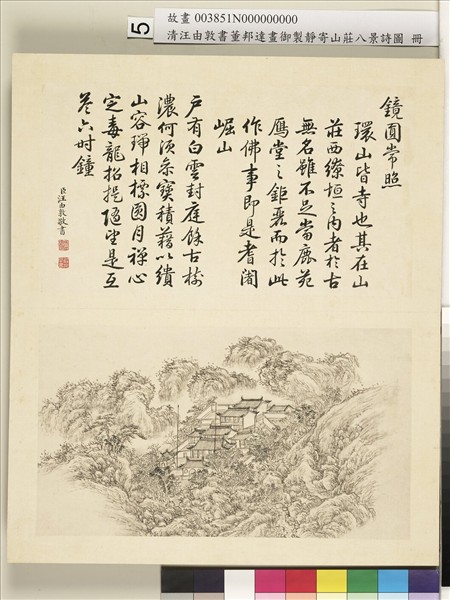 5
故畫 003851N000000000
清汪由敦書董邦達畫御製靜寄山莊八景詩圖 冊
鏡圓常照
環山皆寺也其在山
莊西繚垣之內者於古
無名雖不足當鹿苑
鴈堂之鉅麗而於此
作佛事即是耆闍
崛山
戶有白雲封庭餘古樹
濃何須參寶積藉以繢
山容相標圓月禪心
定毒龍招提隨望是互
荅六时鐘
臣汪由敦敬書